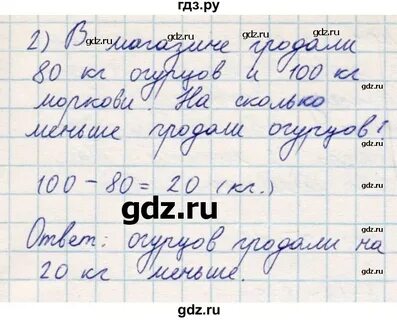 гдз.ру
2) В магазине продали
80 кг огурцов и 100 кг
моркови. На сколько
меньше продали огурцов?
100 - 80 = 20 (кг.)
gdz.ru
Ответ: огурцов продали на
20 кг меньше.
gdz.ru